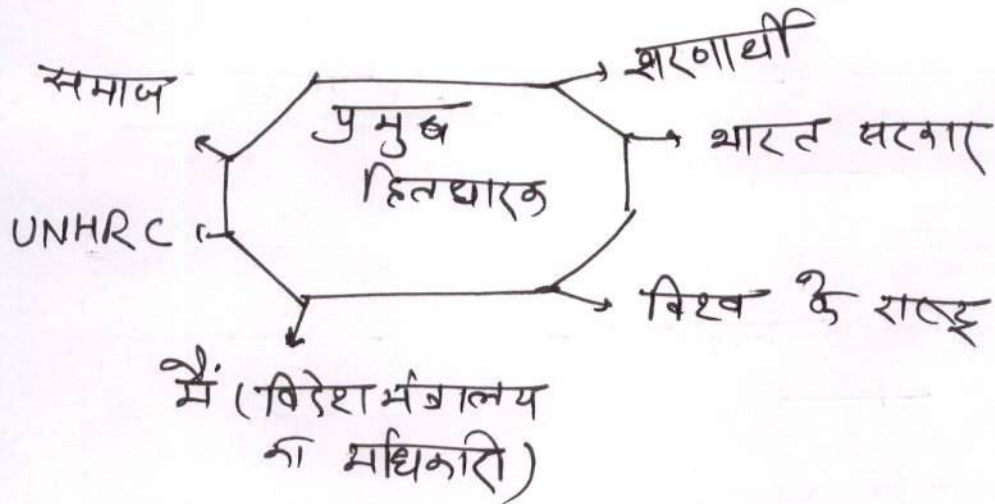 समाज
शरणार्थी
प्रमुख
हितधारक
भारत सरकार
UNHRC
विश्व के राष्ट्र
मैं (विदेश मंत्रालय
का अधिकारी)